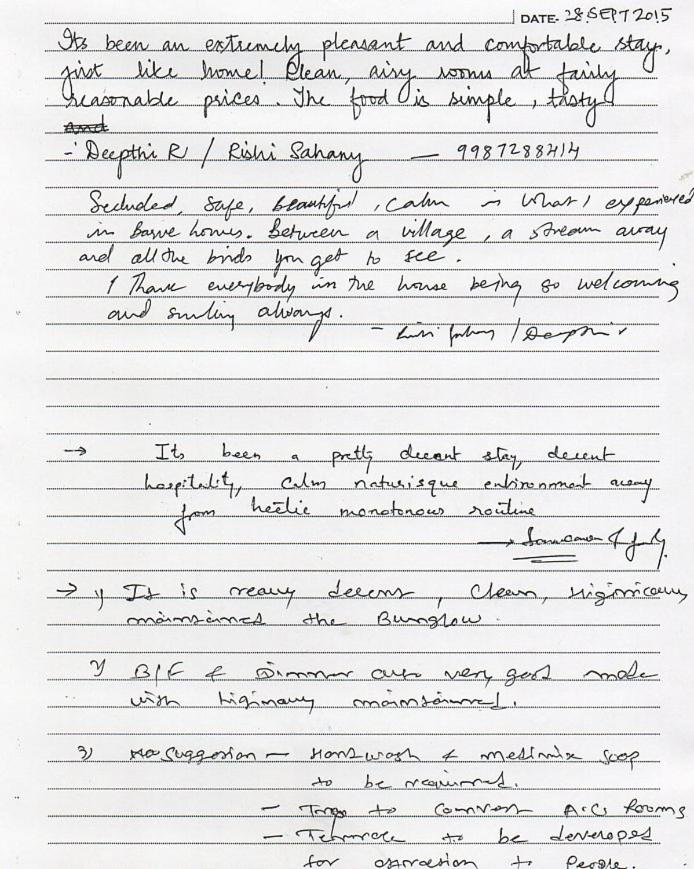 DATE- 28 SEPT 2015
Its been an extremely pleasant and comfortable stay,
just like home! Clean, airy rooms at fairly
reasonable prices. The food is simple, tasty
and
- Deepthi R / Rishi Sahany — 9987288414
Secluded, safe, beautiful, calm is what I experienced
in Barve homes. Between a village, a stream away
and all the birds you get to see.
I Thank everybody in the house being so welcoming
and smiling always.
- / Deepthi r
→ Its been a pretty decent stay, decent
hospitality, calm naturisque environment away
from hectic monotonous routine
→ & family
→ 1) It is really decent, Clean, Higinically
maintained the Bunglow.
2) B/F & Dinner are very good made
with higinally maintained.
3) Suggestion — Handwash & medimix soap
to be required.
— to Convert A.C. Rooms
— Terrace to be developed
for attraction to People.